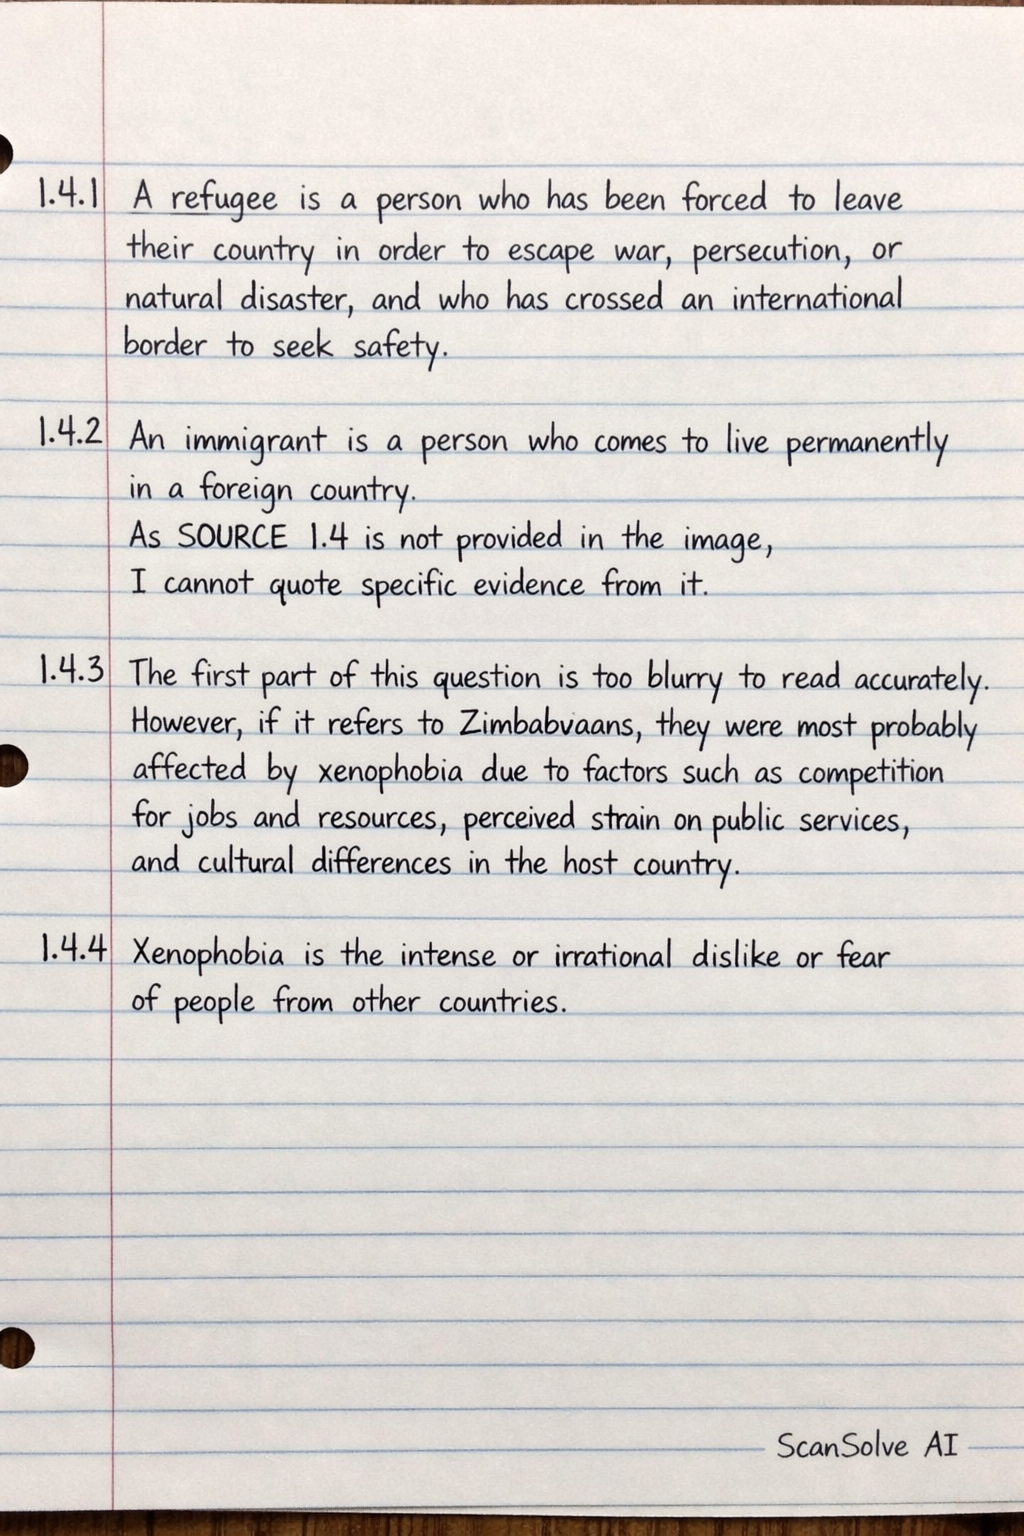 1.4.1 A refugee is a person who has been forced to leave
their country in order to escape war, persecution, or
natural disaster, and who has crossed an international
border to seek safety.
1.4.2 An immigrant is a person who comes to live permanently
in a foreign country.
As SOURCE 1.4 is not provided in the image,
I cannot quote specific evidence from it.
1.4.3 The first part of this question is too blurry to read accurately.
However, if it refers to Zimbabvaans, they were most probably
affected by xenophobia due to factors such as competition
for jobs and resources, perceived strain on public services,
and cultural differences in the host country.
1.4.4 Xenophobia is the intense or irrational dislike or fear
of people from other countries.
ScanSolve AI